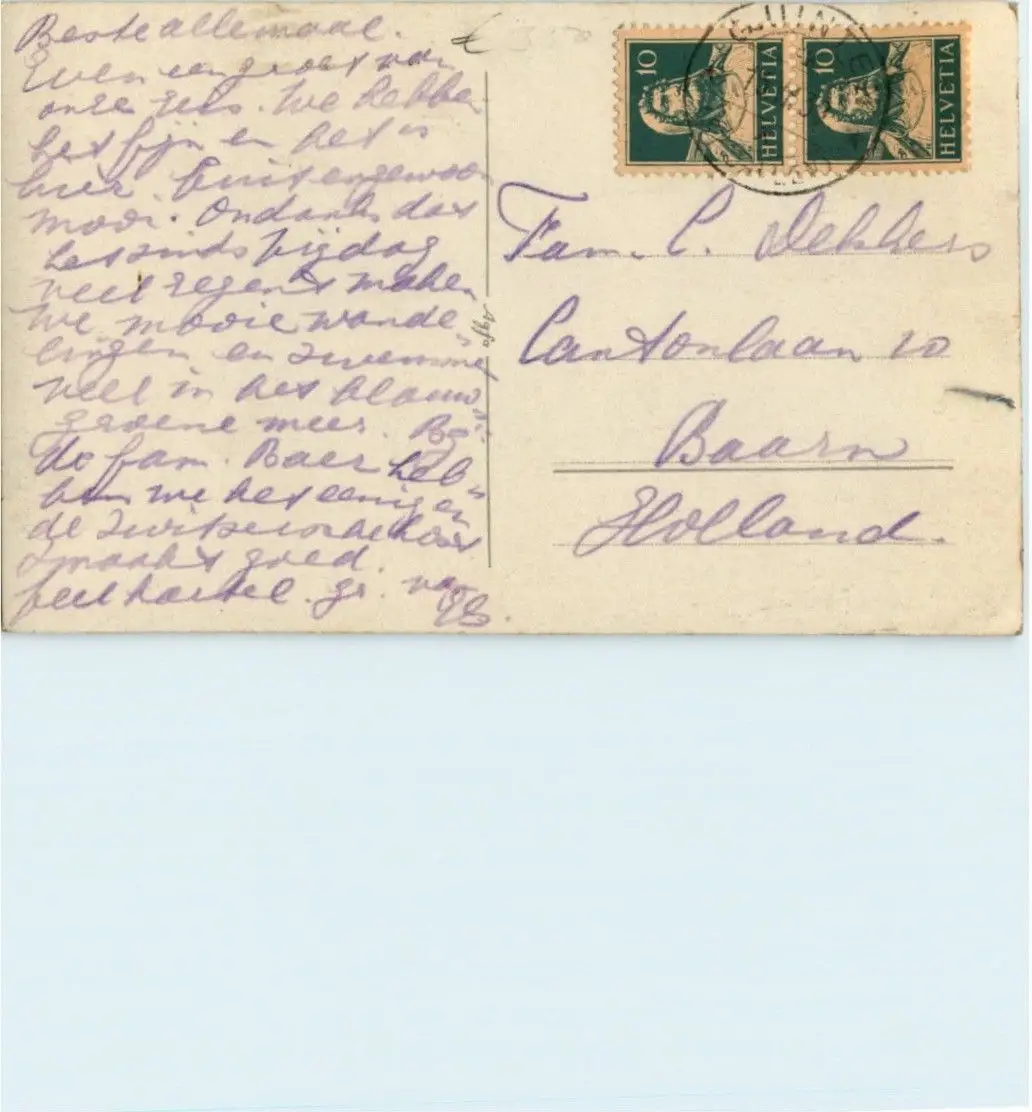 Beste allemaal.
Even een groet van
onze reis. We hebben
het fijn en het is
hier buitengewoon
mooi. Ondanks dat
het sinds Vrijdag
veel regent maken
we mooie wande
lingen en zwemmen
veel in het blauw
groene meer. Bij
de fam. Baer heb
ben we het eenig en
de Zwitsersche kost
smaakt goed.
Veel hartel. gr. van
Agfa
10 HELVETIA
10 HELVETIA
Fam. C. Dekkers
Cantonlaan 10
Baarn
Holland.